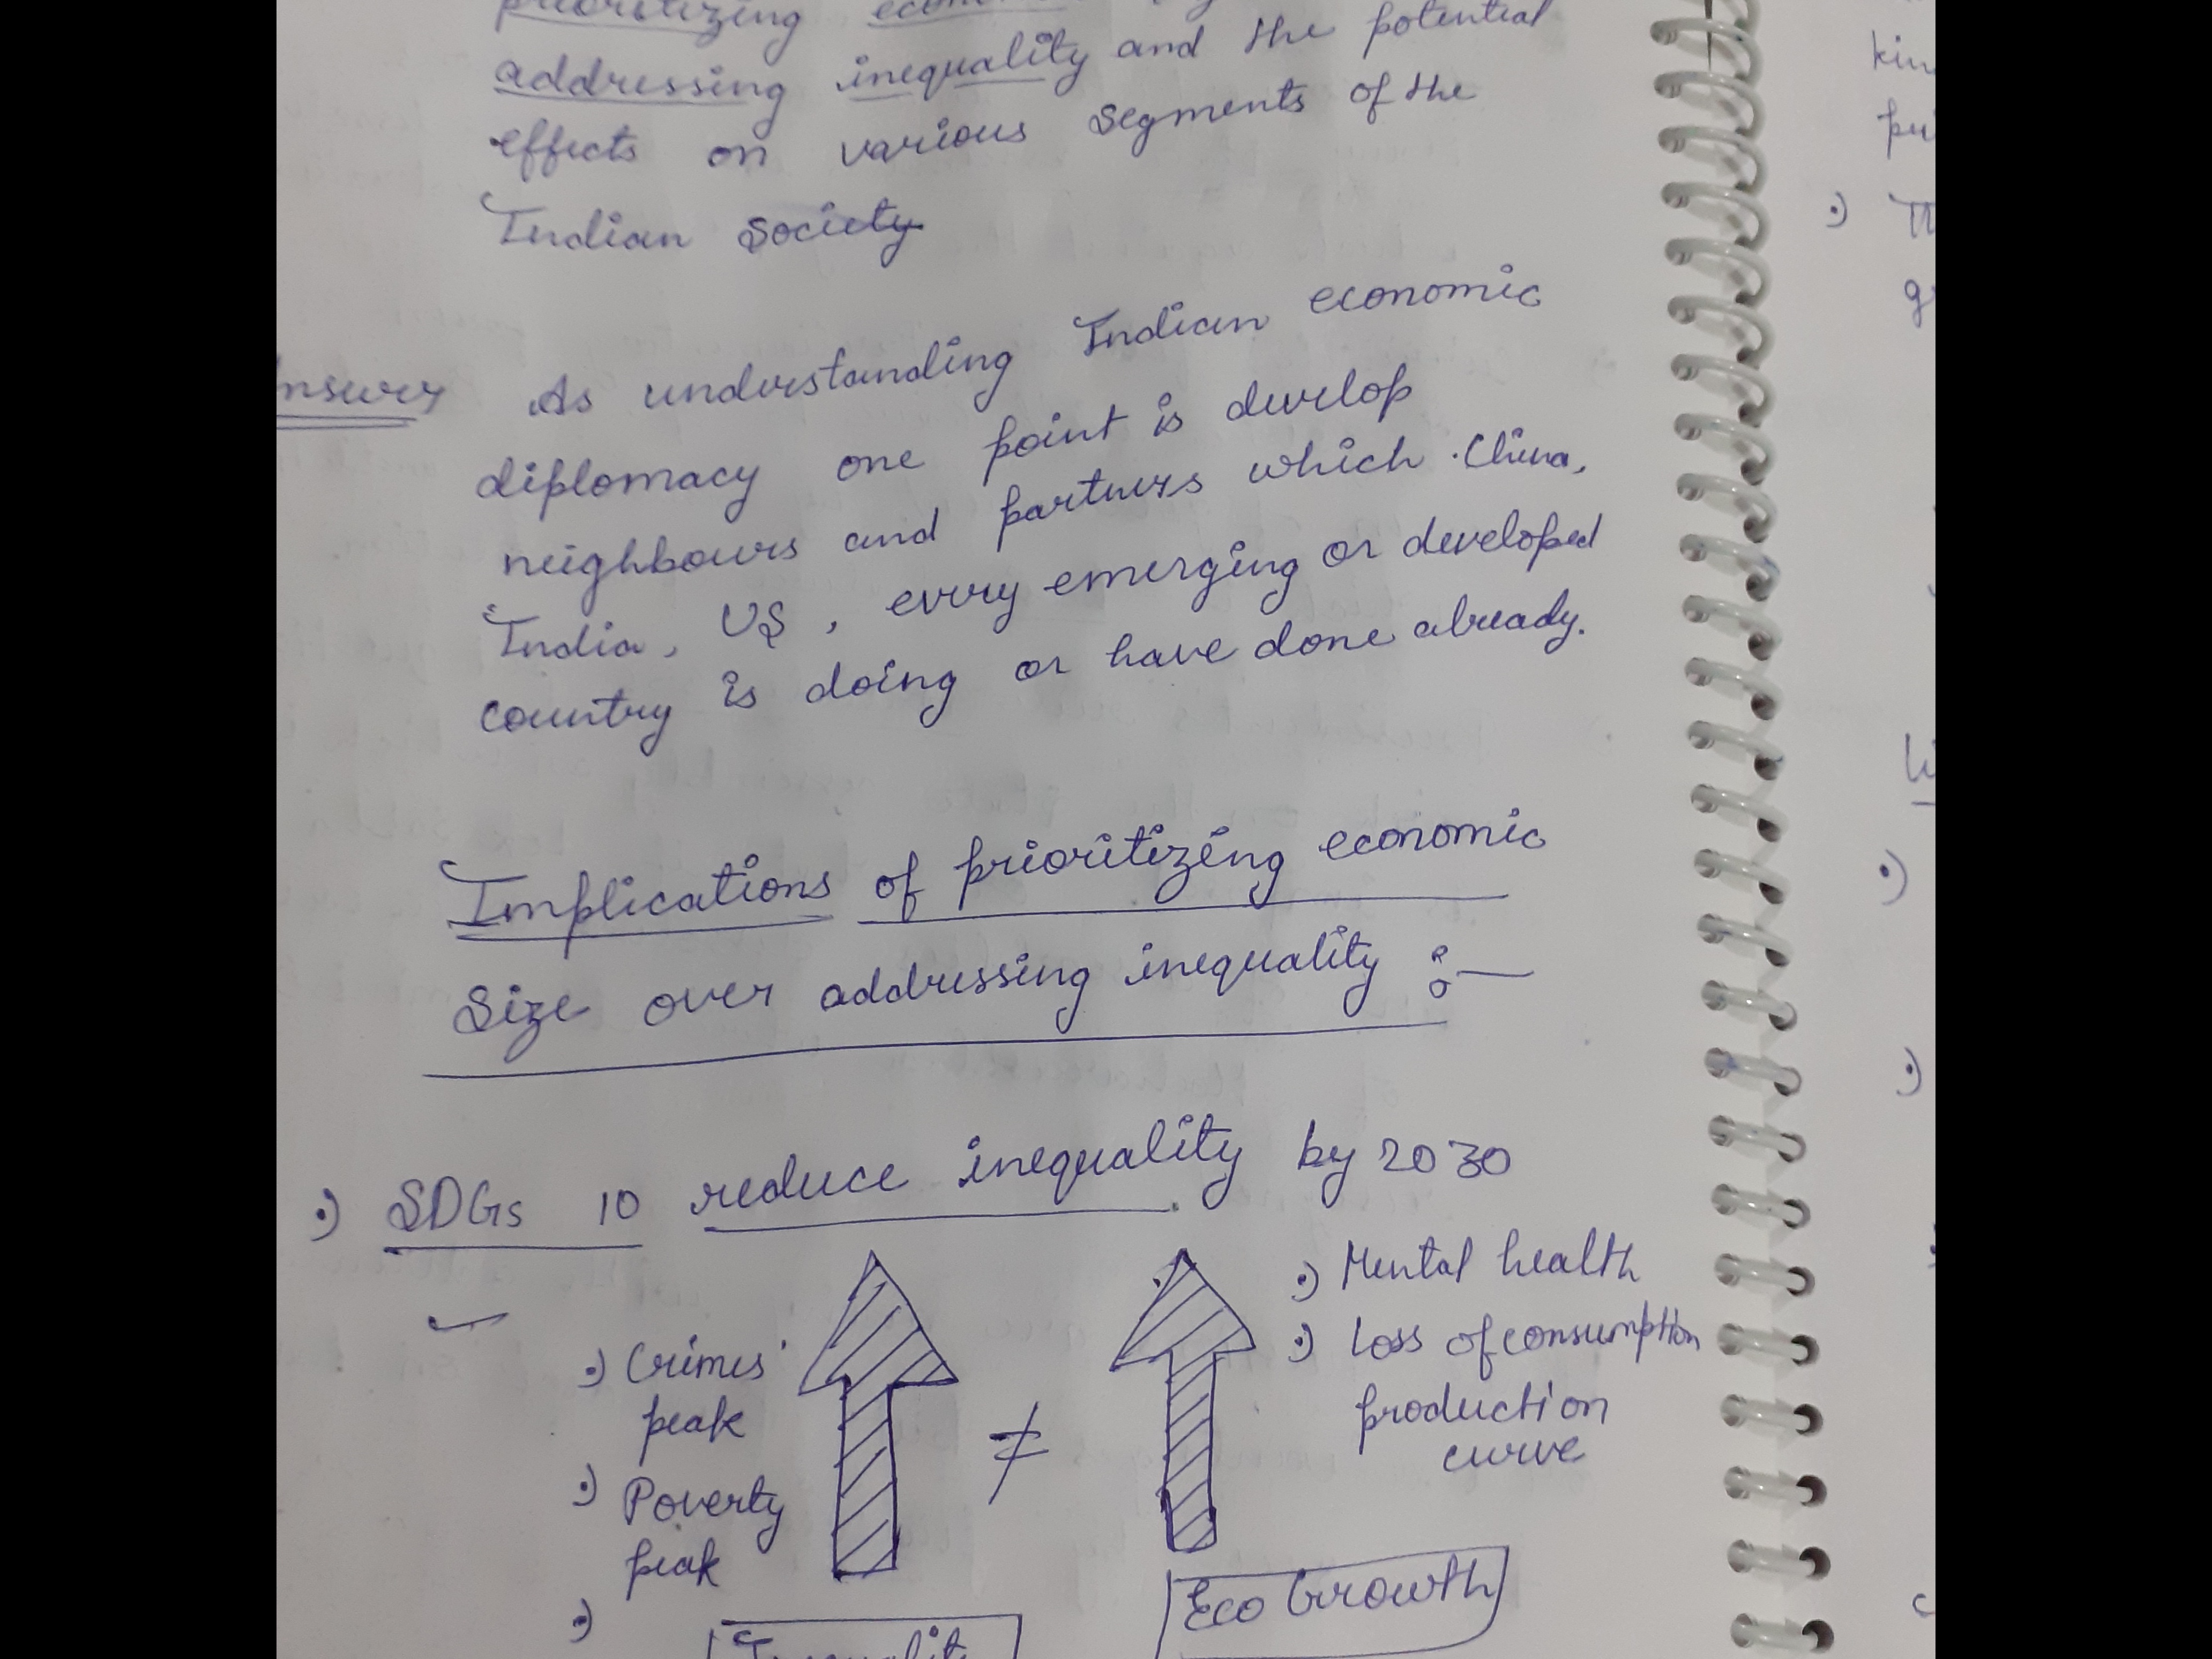 prioritizing
addressing inequality and the potential
effects on various segments of the
Indian Society
As understanding Indian economic
diplomacy one point is develop
neighbours and partners which China,
India, US, every emerging or developed
country is doing or have done already.
Implications of prioritizing economic
Size over addressing inequality :—
SDGs 10 reduce inequality by 2030
Mental health
Loss of consumption
production
curve
Crimes
peak
≠
Poverty
peak
Eco Growth